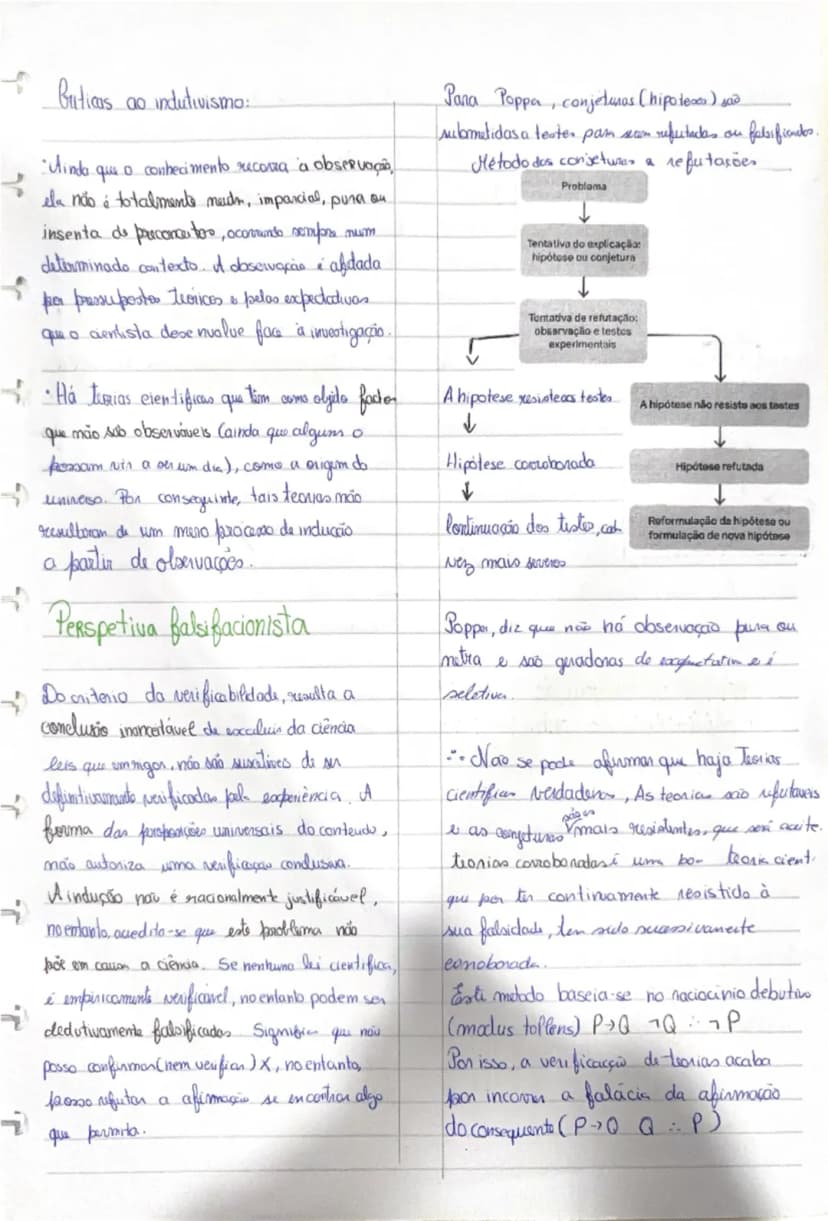 Críticas ao indutivismo:
·Ainda que o conhecimento recorra à observação,
ela não é totalmente neutra, imparcial, pura ou
insenta de preconceitos, ocorrendo sempre num
determinado contexto. A observação é afetada
por pressupostos teóricos e pelas expectativas
que o cientista desenvolve face à investigação.
·Há teorias científicas que têm como objeto factos
que não são observáveis (ainda que algum o
possam vir a ser um dia), como a origem do
universo. Por conseguinte, tais teorias não
resultaram de um mero processo de indução
a partir de observações.
Perspetiva falsifacionista
Do criterio da verificabilidade, resulta a
conclusão inaceitável de excluir da ciência
leis que em rigor, não são suscetíveis de ser
definitivamente verificadas pela experiência. A
forma das proposições universais do conteudo,
não autoriza uma verificação conclusiva.
A indução não é racionalmente justificável,
no entanto, acredita-se que este problema não
põe em causa a ciência. Se nenhuma lei científica,
é empiricamente verificável, no entanto podem ser
dedutivamente falsificadas. Significa que não
posso confirmar (nem verificar) X, no entanto,
posso refutar a afirmação se encontrar algo
que permita.
Para Popper, conjeturas (hipoteses) são
submetidas a testes para serem refutadas ou falsificadas.
Método das conjeturas e refutações
Problema
Tentativa de explicação:
hipótese ou conjetura
Tentativa de refutação:
observação e testes
experimentais
A hipotese resiste aos testes
↓
Hipótese corroborada
↓
Continuação dos testes, cada
vez mais severos
A hipótese não resiste aos testes
Hipótese refutada
Reformulação da hipótese ou
formulação de nova hipótese
Popper, diz que não há observação pura ou
neutra e são geradoras de e é
seletiva.
∴ Não se pode afirmar que haja Teorias
cientificas verdadeiras, As teorias são refutáveis
e as conjeturas mais resistentes, que será aceite.
teorias corroboradas é uma boa teoria cient.
que por ter continuamente resistido à
sua falsidade, tem sido sucessivamente
corroborada.
Este metodo baseia-se no raciocinio debutivo
(modus tollens) P→Q ¬Q ∴ ¬P
Por isso, a verificação de teorias acaba
por incorrer a falácia da afirmação
do consequente (P→Q Q ∴ P)